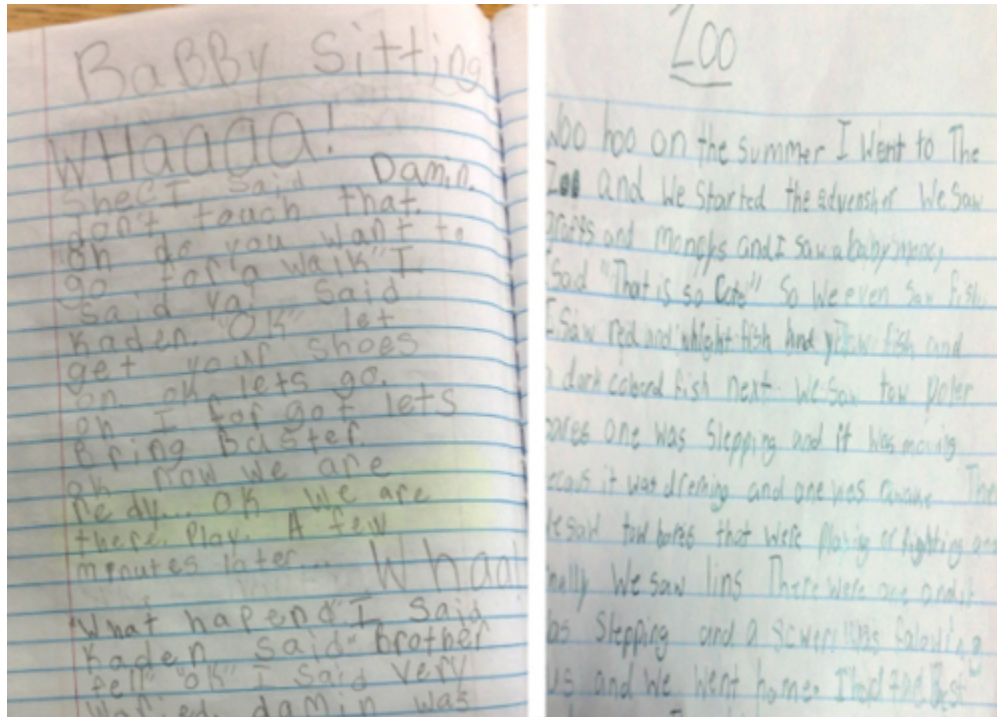 BaBBy Sitting
WHaaaa!
Shec I said Damin.
don't touch that.
"oh do you want to
go for a walk" I
said yai said
Kaden. "OK" let
get your shoes
on. ok lets go.
oh I for got lets
Bring Buster.
ok now we are
redy... ok we are
there. Play. A few
minutes later... Whaa!
"What hapend" I said
Kaden said "brother
fell" "ok" I said very
damin was
Zoo
Woo hoo on the summer I Went to The
Zoo and We Started the advensher We Saw
and moneys and I saw a baby money
I Said "That is so Cute" So We even Saw fish
I Saw red and whight fish And yellow fish and
a dark colored fish next. We Saw tow poler
bares one was Slepping and it was moving
it was dreming and one was awake The
We saw tow bares that Were Playing or fighting and
We saw lins There were one and it
Slepping and a was falowing
us and We Went home. I had the Best